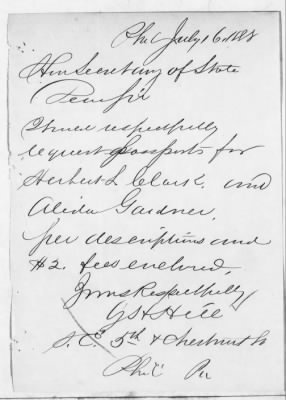 Phil July 16. 188
Hon Secretary of State
Dear Sir
I would respectfully
request passports for
Herbert L Clark. and
Alida Gardner,
per descriptions and
$2. fees enclosed,
Yours Respectfully
Hill
S. E. 5th & Chestnut St
Phil Pa